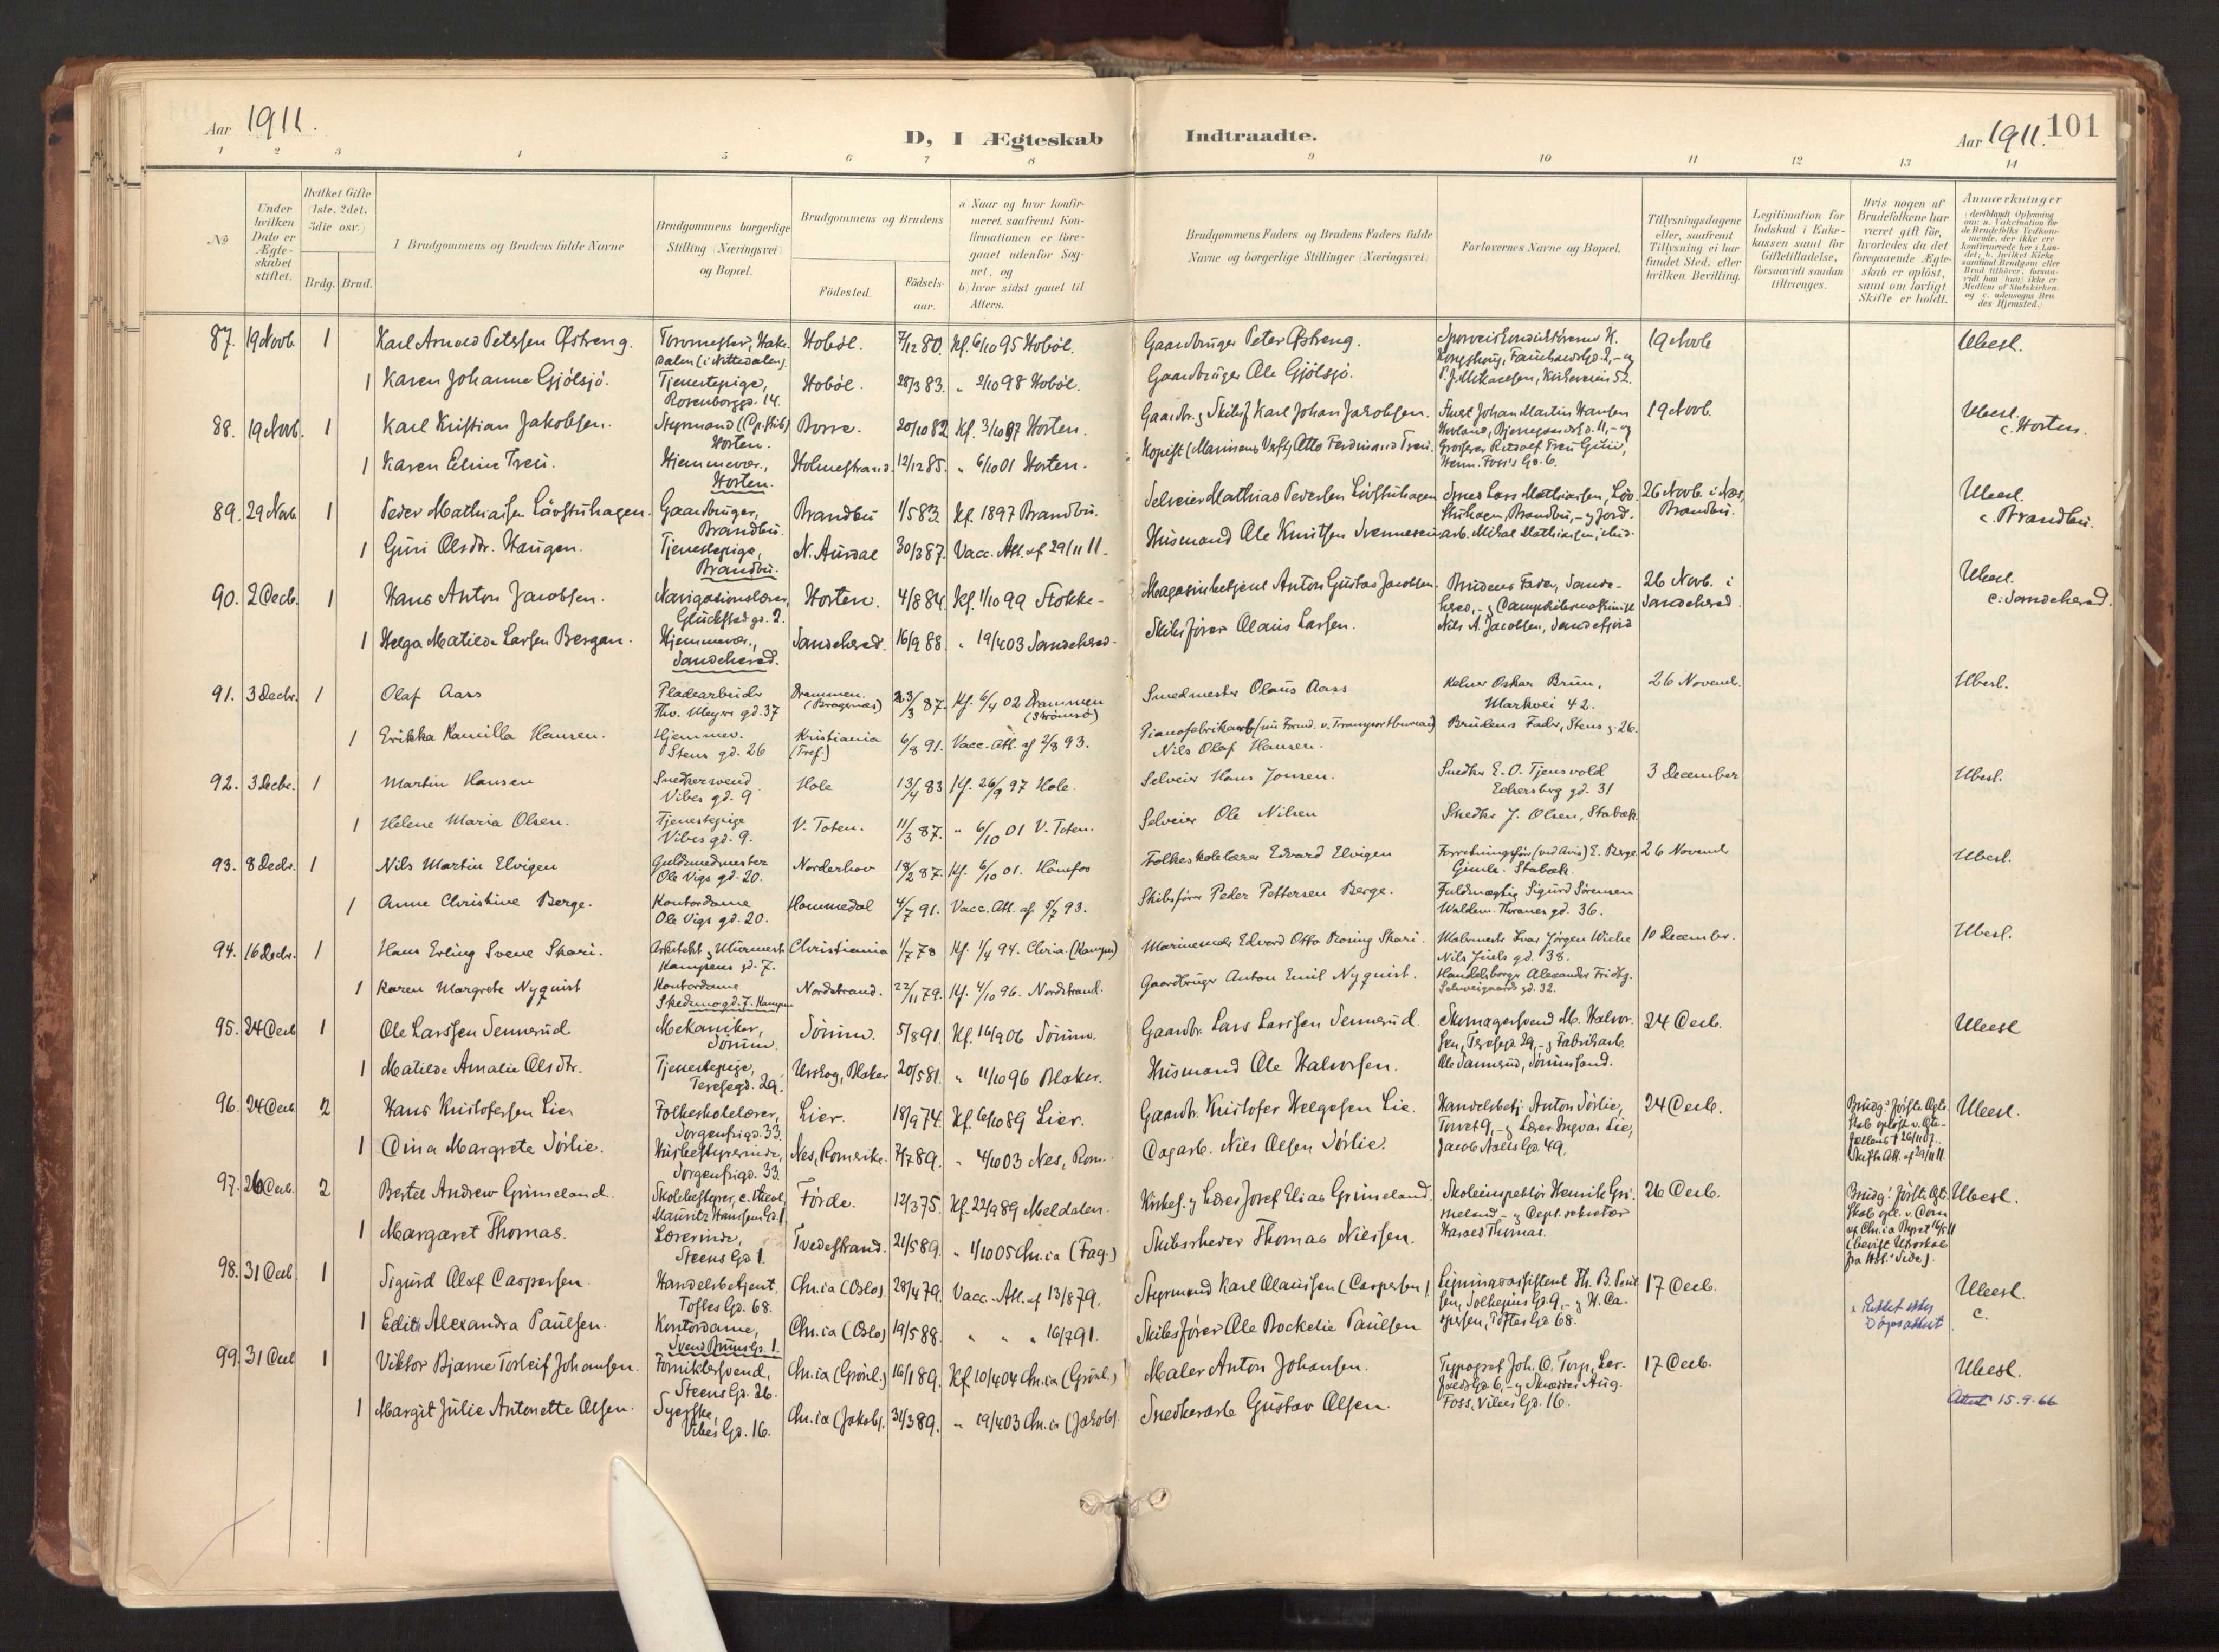 Aar 1911.
D, I Ægteskab Indtraadte.
Aar 1911. 101
1 2 3 4 5 6 7 8 9 10 11 12 13 14
№
Under hvilken Dato er Ægteskabet stiftet.
Hvilket Gifte (1ste, 2det, 3die osv.)
Brdg. Brud.
I Brudgommens og Brudens fulde Navne
Brudgommens borgerlige Stilling (Næringsvei) og Bopæl.
Brudgommens og Brudens
Födested. Födsels-aar.
a) Naar og hvor konfirmeret, saafremt Konfirmationen er foregaaet udenfor Sognet, og
b) hvor sidst gaaet til Alters.
Brudgommens Faders og Brudens Faders fulde Navne og borgerlige Stillinger (Næringsvei)
Forlovernes Navne og Bopæl.
Tillysningsdagene eller, saafremt Tillysning ei har fundet Sted, efter hvilken Bevilling.
Legitimation for Indskud i Enkekassen samt for Giftetilladelse, forsaavidt saadan tiltrænges.
Hvis nogen af Brudefolkene har været gift för, hvorledes da det foregaaende Ægteskab er oplöst, samt om lovligt Skifte er holdt.
Anmærkninger
87. 19 Novb. 1 Karl Arnold Petersen Østreng. Hobøl. 7/12 80. Kf. 6/10 95 Hobøl. Gaardbruger Peter Østreng. 19 Novb Ubesl.
1 Karen Johanne Gjölsjö. Tjenestepige, Rosenborggd. 14. Hobøl. 28/3 83. " 2/10 98 Hobøl. Gaardbruger Ole Gjölsjö.
88. 19 Novb. 1 Karl Kristian Jakobsen. Styrmand Horten. Borre. 20/10 82 Kf. 3/10 97 Horten. Gaardbr. & Skibsf. Karl Johan Jakobsen. 19 Novb. Ubesl. c. Horten.
1 Karen Eline Treu. Hjemmevær., Horten. Holmestrand. 12/12 85. " 6/10 01 Horten. Kopist (Marinens Verft) Otto Ferdinand Treu.
89. 29 Novb 1 Peder Mathiasen Lövstuhagen. Gaardbruger, Brandbu. Brandbu 1/5 83. Kf. 1897 Brandbu. Selveier Mathias Pedersen Lövstuhagen 26 Novb. i Brandbu. Ubesl. c. Brandbu.
1 Guri Olsdtr. Haugen. Tjenestepige, Brandbu. N. Aurdal 30/3 87. Vacc. Att. af 29/11 11. Husmand Ole Knutsen
90. 2 Decb. 1 Hans Anton Jacobsen. Navigationslærer, Glückstadgd. 2. Horten. 4/8 84. Kf. 1/10 99 Stokke Magasinbetjent Anton Gustav Jacobsen. Brudens Fader, Sandeherred, & Nils A. Jacobsen, Sandefjord 26 Novb. i Sandeherred Ubesl. c. Sandeherred.
1 Helga Matilde Larsen Bergan. Hjemmevær., Sandeherred. Sandeherred. 16/9 88. " 19/4 03 Sandeherred. Skibsförer Olaus Larsen.
91. 3 Decbr. 1 Olaf Aass Pladearbeider Thv. Meyers gd. 37 Drammen (Bragernæs) 23/3 87. Kf. 6/4 02 Drammen (Strömsö) Smedmester Olaus Aass Kelner Oskar Brun, Markvei 42. 26 Novemb. Ubesl.
1 Erikka Kamilla Hansen. Hjemmev. Stens gd. 26 Kristiania (Tref.) 6/8 91. Vacc. Att. af 2/8 93. Nils Olaf Hansen. Brudens Fader, Stens g. 26.
92. 3 Decbr. 1 Martin Hansen Snedkersvend Vibes gd. 9 Hole 13/4 83 Kf. 26/9 97 Hole. Selveier Hans Jonsen. Snedker E. O. Tjensvold Eckersberg gd. 31 3 December Ubesl.
1 Helene Maria Olsen. Tjenestepige Vibes gd. 9. V. Toten. 11/3 87. " 6/10 01 V. Toten. Selveier Ole Nilsen Snedker J. Olsen, Stabæk
93. 8 Decbr. 1 Nils Martin Elvigen Guldsmedmester Ole Vigs gd. 20. Norderhov 18/2 87. Kf. 6/10 01. Hönefos Folkeskolelærer Edvard Elvigen E. Berge Gimle. Stabæk. 26 Novemb Ubesl.
1 Anne Christine Berge. Kontordame Ole Vigs gd. 20. Hommedal 4/7 91. Vacc. Att. af 5/7 93. Skibsförer Peder Pettersen Berge. Fuldmægtig Sigurd Sörensen Waldem. Thranes gd. 36.
94. 16 Decbr. 1 Hans Erling Svene Skari. Arkitekt & Murmest. Kampens gd. 7. Christiania 1/7 78 Kf. 1/4 94. Chria. (Kampen) Edvard Otto Rosing Skari. Malermester Ivar Jörgen Wiche Nils Juels gd. 38. 10 December. Ubesl.
1 Karen Margrete Nyquist Kontordame Skedsmogd. 7. Kampen Nordstrand. 22/11 79. Kf. 4/10 96. Nordstrand. Gaardbruger Anton Emil Nyquist. Alexander Fridbg. Schweigaards gd. 32.
95. 24 Decb 1 Ole Larssen Sennerud Mekaniker, Sörum. Sörum. 5/8 91. Kf. 16/9 06 Sörum. Gaardbr. Lars Larssen Sennerud. Skomagersvend M. Halvorsen, Teresegd. 29, & Fabrikarb. Ole Sannerud, Sörumsand. 24 Decb. Ubesl
1 Matilde Amalie Olsdtr. Tjenestepige, Teresegd. 29. Urskog, Blaker 20/5 81. " 11/10 96 Blaker. Husmand Ole Halvorsen.
96. 24 Decb 2 Hans Kristofersen Lier Folkeskolelærer, Sorgenfrigd. 33. Lier. 18/9 74. Kf. 6/10 89 Lier. Gaardbr. Kristofer Helgesen Lie. Handelsbetj. Anton Sörlie, Torvet 9, & Lærer Ingvar Lie, Jacob Aalls Gd. 49. 24 Decb. Ubesl.
1 Dina Margrete Sörlie. Husbestyrerinde, Sorgenfrigd. 33. Nes, Romerike. 7/7 89. " 4/10 03 Nes, Rom. Dagarb. Nils Olsen Sörlie.
97. 26 Decb. 2 Bertel Andrew Grimeland. Skolebestyrer, Mauritz Hansens Gd. 1 Förde. 12/3 75. Kf. 22/9 89 Meldalen. Kirkes. & Lærer Josef Elias Grimeland. Skoleinspektör Henrik Grimeland & Dept. sekretær Harald Thomas. 26 Decb. Ubesl.
1 Margaret Thomas. Lærerinde, Steens Gd. 1. Tvedestrand. 21/5 89. " 1/10 05 Chr.ia (Fag.) Skibsreder Thomas Nielsen.
98. 31 Decb 1 Sigurd Olaf Caspersen. Handelsbetjent, Toftes Gd. 68. Chr.ia (Oslo) 28/4 79. Vacc. Att. af 13/8 79. Styrmand Karl Olaussen (Caspersen) 17 Decb. Ubesl. c.
1 Edith Alexandra Paulsen. Kontordame, Svend Bruns Gd. 1. Chr.ia (Oslo) 19/5 88. " " " 16/7 91. Skibsförer Ole Bockelie Paulsen
99. 31 Decb 1 Viktor Bjarne Torleif Johansen. Forniklersvend, Steens Gd. 26. Chr.ia (Grönl.) 16/1 89. Kf 10/4 04 Chr.ia (Grönl.) Maler Anton Johansen. Typograf Joh. O. Torp, & Skrædder Aug. Foss, Vibes Gd. 16. 17 Decb. Ubesl.
1 Margit Julie Antonette Olsen. Syerske, Vibes Gd. 16. Chr.ia (Jakobs). 31/3 89. " 19/4 03 Chr.ia (Jakobs). Snedkerarb. Gustav Olsen. Attest 15.9.66